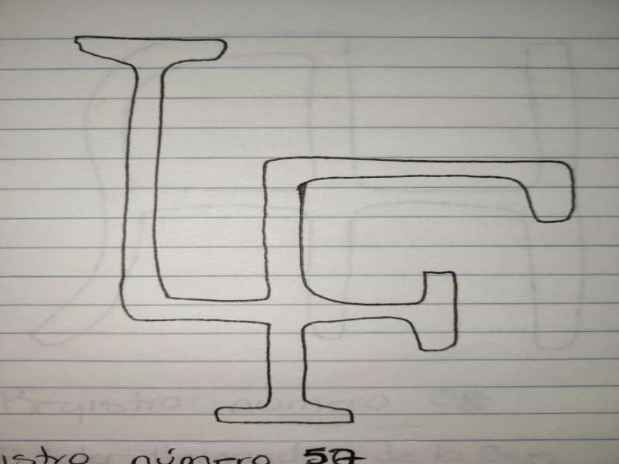 LF
istro número 57